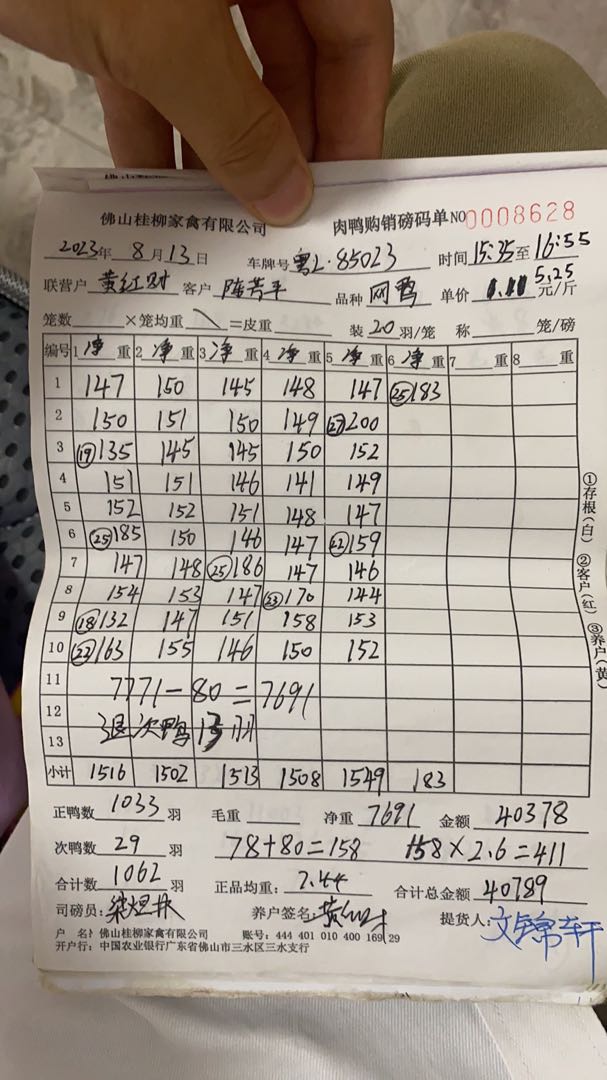 佛山桂柳家禽有限公司 肉鸭购销磅码单 NO 0008628
2023年 8月13日 车牌号 粤L·85023 时间 15:35至16:55
联营户 黄红财 客户 品种 网鸭 单价 5.25 元/斤
笼数 ×笼均重 =皮重 装 20 羽/笼 称 笼/磅
编号 1 净重 2 净重 3 净重 4 净重 5 净重 6 净重 7 重 8 重
1 147 150 145 148 147 ㉕183
2 150 151 150 149 ㉗200
3 ⑲135 145 145 150 152
4 151 151 146 141 149
5 152 152 151 148 147
6 ㉕185 150 146 147 ㉒159
7 147 148 ㉕186 147 146
8 154 153 147 ㉓170 144
9 ⑱132 147 151 158 153
10 ㉒163 155 146 150 152
11 7771-80=7691
12 退次鸭13羽
13
小计 1516 1502 1513 1508 1549 183
正鸭数 1033 羽 毛重 净重 7691 金额 40378
次鸭数 29 羽 78+80=158 158×2.6=411
合计数 1062 羽 正品均重: 7.44 合计总金额 40789
司磅员: 养户签名: 黄红财 提货人:
户 名: 佛山桂柳家禽有限公司 账号: 444 401 010 400 169 29
开户行: 中国农业银行广东省佛山市三水区三水支行
①存根(白) ②客户(红) ③养户(黄)